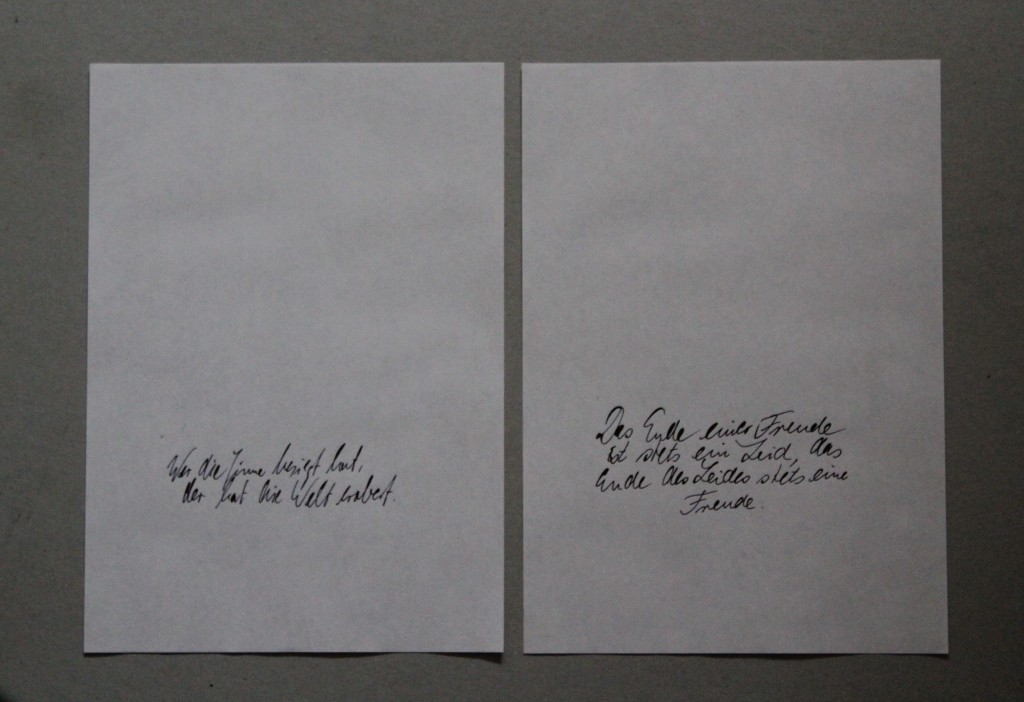 Wer die Sinne besiegt hat,
der hat die Welt erobert.
Das Ende einer Freude
ist stets ein Leid, das
Ende des Leides stets eine
Freude.